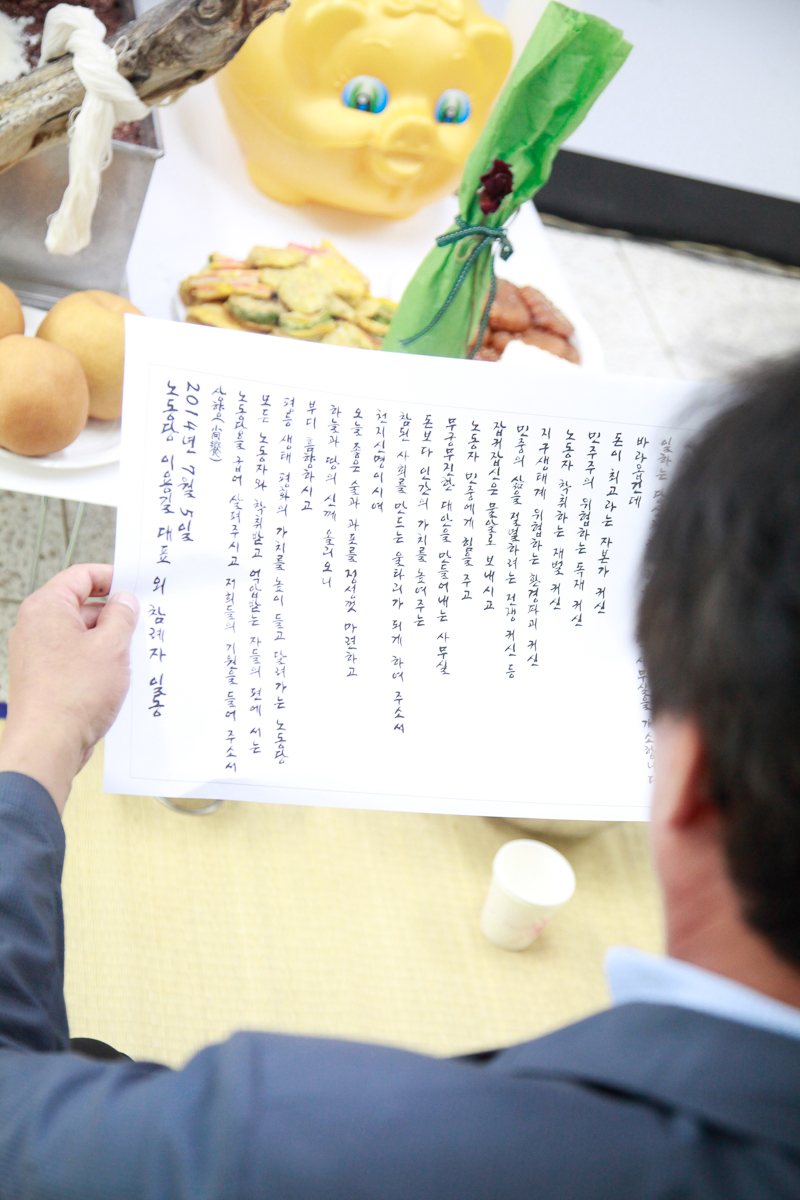 일하는
사무실을 개소합니다
바라옵건데
돈이 최고라는 자본가 귀신
민주주의 위협하는 독재 귀신
노동자 착취하는 재벌 귀신
지구생태계 위협하는 환경파괴 귀신
민중의 삶을 절멸하려는 전쟁 귀신 등
잡귀잡신은 물알로 보내시고
노동자 민중에게 힘을 주고
무궁무진한 대안을 만들어내는 사무실
돈보다 인간의 가치를 높여주는
참된 사회를 만드는 울타리가 되게 하여 주소서
천지신명이시여
오늘 좋은 술과 과포를 정성껏 마련하고
하늘과 땅의 신께 올리오니
부디 흠향하시고
평등 생태 평화의 가치를 높이 들고 달려가는 노동당
모든 노동자와 착취받고 억압받는 자들의 편에 서는
노동당을 굽어 살펴주시고 저희들의 기원을 들어 주소서
상향(尙饗)
2014년 7월 5일
노동당 이용길 대표 외 참례자 일동